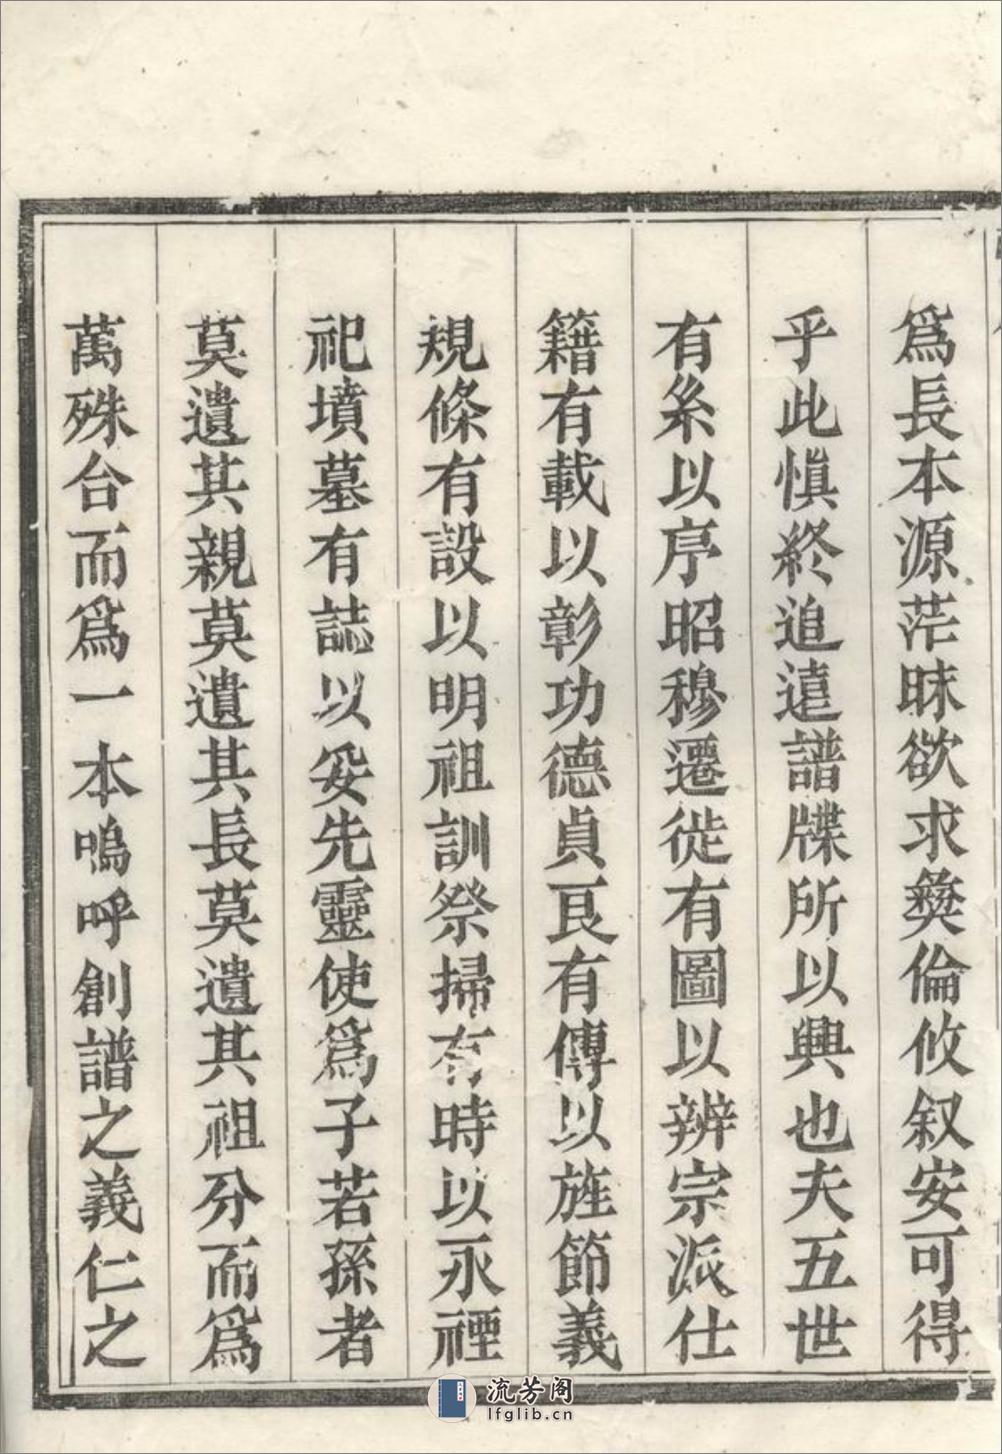 爲長本源茫昧欲求彜倫攸叙安可得
乎此慎終追逺譜牒所以興也夫五世
有系以序昭穆遷徙有圖以辨宗派仕
籍有載以彰功德貞良有傳以旌節義
規條有設以明祖訓祭掃有時以永禋
祀墳墓有誌以妥先靈使爲子若孫者
莫遺其親莫遺其長莫遺其祖分而爲
萬殊合而爲一本嗚呼創譜之義仁之
流芳阁
lfglib.cn